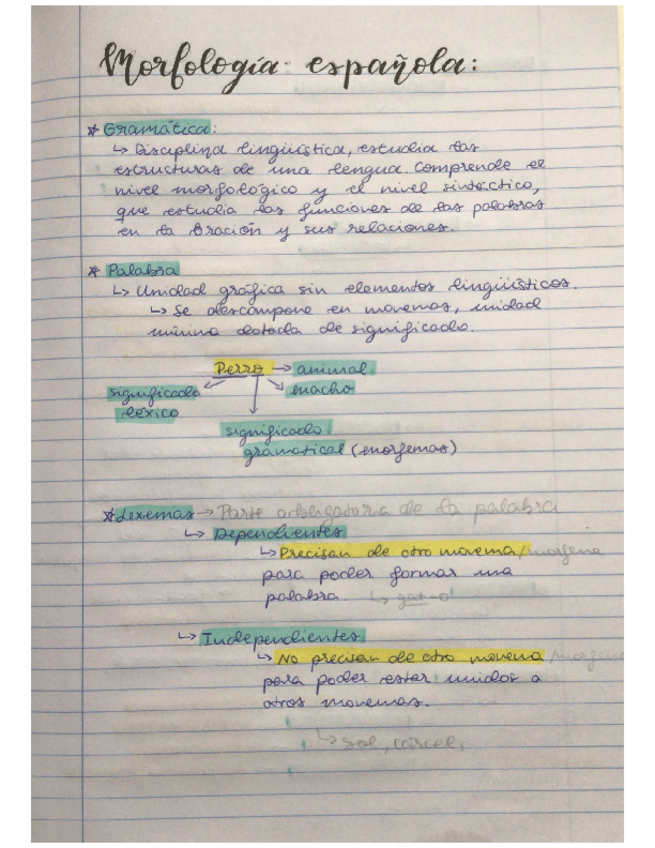 Morfología española:
* Gramática:
↳ Disciplina lingüística, estudia las
estructuras de una lengua. Comprende el
nivel morfológico y el nivel sintáctico,
que estudia las funciones de las palabras
en la Oración y sus relaciones.
* Palabra
↳ Unidad gráfica sin elementos lingüísticos.
↳ Se descompone en monemas, unidad
mínima dotada de significado.
Perro → animal
significado
macho
léxico
significado
gramatical (morfemas)
* Lexemas → Parte obligatoria de la palabra
↳ Dependientes
↳ Precisan de otro monema/morfema
para poder formar una
palabra. ↳ gat-o
↳ Independientes
↳ No precisan de otro monema/morfema
para poder estar unidos a
otros monemas.
↳ Sol, cárcel,